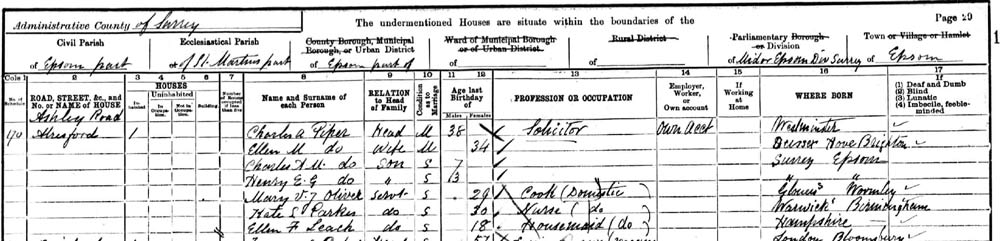 Administrative County of Surrey
The undermentioned Houses are situate within the boundaries of the
Page 29
1
Civil Parish
of Epsom part
Ecclesiastical Parish
of St. Martins part
County Borough, Municipal Borough, or Urban District
of Epsom part of
Ward of Municipal Borough or of Urban District
Rural District
Parliamentary Borough or Division
of Mid or Epsom Div Surrey
Town or Village or Hamlet
of Epsom
Cols 1 2 3 4 5 6 7 8 9 10 11 12 13 14 15 16 17
No. of Schedule
ROAD, STREET, &c., and No. or NAME of HOUSE
HOUSES
Inhabited
Uninhabited
In Occupation
Not in Occupation
Building
Name and Surname of each Person
RELATION to Head of Family
Condition as to Marriage
Age last Birthday of
Males
Females
PROFESSION OR OCCUPATION
Employer, Worker, or Own account
If Working at Home
WHERE BORN
If
(1) Deaf and Dumb
(2) Blind
(3) Lunatic
(4) Imbecile, feeble-minded
Ashley Road
170 Alresford 1 Charles A Piper Head M 38 Solicitor Own Acct Westminster
Ellen M do Wife M 34 Hove Brighton
Charles A. M. do Son S 7 Surrey Epsom
Henry E G do " S 3 "
Mary V. J Oliver Servt S 29 Cook (Domestic) Wormley
Kate S Parkes do S 30 Nurse (do Warwick Birmingham
Ellen F Leach do S 18 Housemaid (do) Hampshire
London Bloomsbury